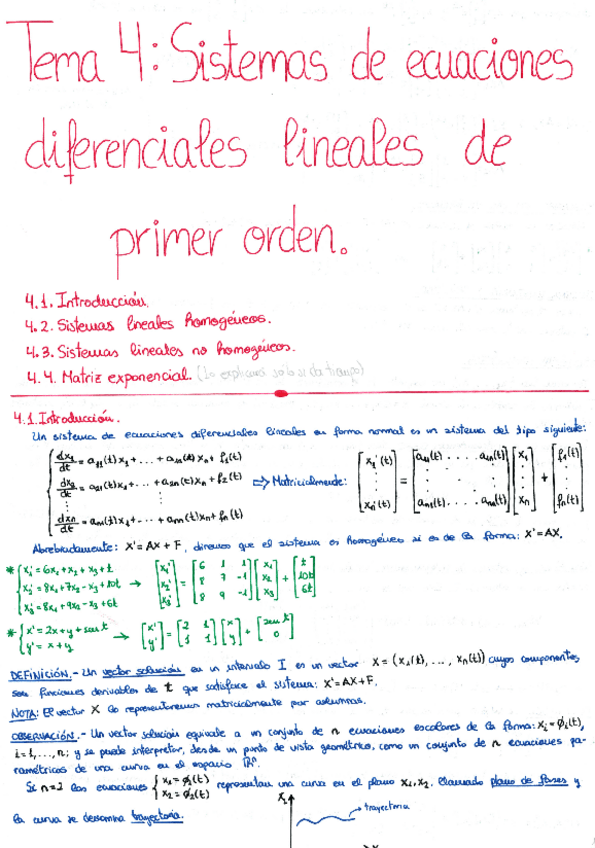 Tema 4: Sistemas de ecuaciones
diferenciales lineales de
primer orden.
4.1. Introducción.
4.2. Sistemas lineales homogéneos.
4.3. Sistemas lineales no homogéneos.
4.4. Matriz exponencial. (Lo explicará solo si da tiempo)
4.1. Introducción.
Un sistema de ecuaciones diferenciales lineales en forma normal es un sistema del tipo siguiente:
dx₁/dt = a₁₁(t)x₁+...+a₁ₙ(t)xₙ+f₁(t)
dx₂/dt = a₂₁(t)x₁+...+a₂ₙ(t)xₙ+f₂(t)
⋮
dxₙ/dt = aₙ₁(t)x₁+...+aₙₙ(t)xₙ+fₙ(t)
⇒ Matricialmente: [x₁'(t) ⋮ xₙ'(t)] = [a₁₁(t) ... a₁ₙ(t) ⋮ aₙ₁(t) ... aₙₙ(t)] [x₁ ⋮ xₙ] + [f₁(t) ⋮ fₙ(t)]
Abreviadamente: X'=AX+F, diremos que el sistema es homogéneo si es de la forma: X'=AX.
* x₁'=6x₁+x₂+x₃+t
x₂'=8x₁+7x₂-x₃+10t
x₃'=8x₁+9x₂-x₃+6t
→ [x₁' x₂' x₃'] = [6 1 1 8 7 -1 8 9 -1] [x₁ x₂ x₃] + [t 10t 6t]
* x'=2x+y+sen t
y'=x+y
→ [x' y'] = [2 1 1 1] [x y] + [sen t 0]
DEFINICIÓN.- Un vector solución en un intervalo I es un vector X=(x₁(t),...,xₙ(t)) cuyos componentes
son funciones derivables de t que satisface el sistema: X'=AX+F.
NOTA: El vector X lo representaremos matricialmente por columnas.
OBSERVACIÓN.- Un vector solución equivale a un conjunto de n ecuaciones escalares de la forma: xᵢ=φᵢ(t),
i=1,...,n; y se puede interpretar, desde un punto de vista geométrico, como un conjunto de n ecuaciones pa-
ramétricas de una curva en el espacio ℝⁿ.
Si n=2 las ecuaciones { x₁=φ₁(t) x₂=φ₂(t) representan una curva en el plano x₁,x₂, llamado plano de fases y
la curva se denomina trayectoria.
x₂
trayectoria